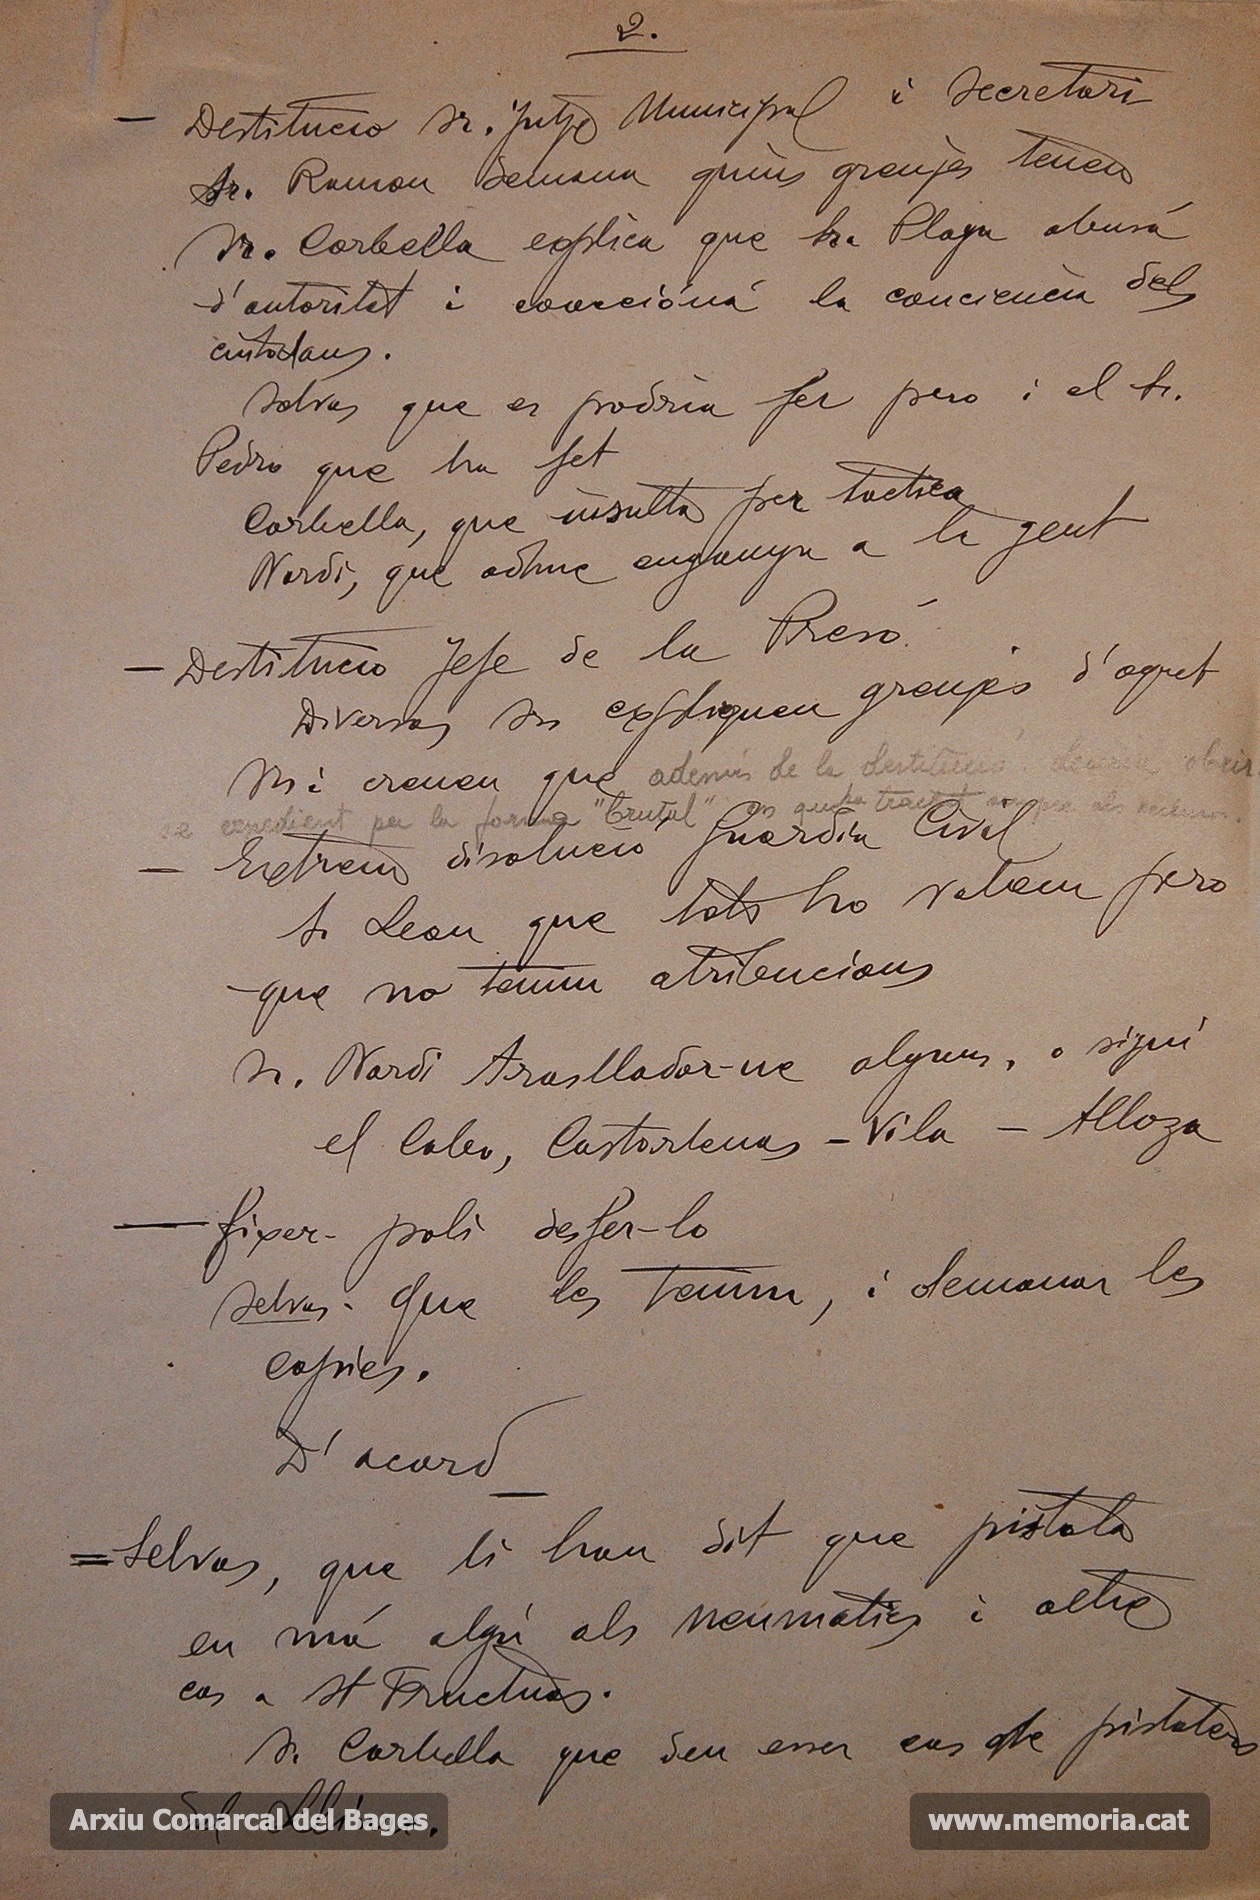 2.
— Destitucio Sr. Jutge Municipal i Secretari
Sr. Ramon demana quins greuges tenen
Sr. Corbella explica que Sr. Playa abusá
d'autoritat i coaccióná la conciencia dels
ciutadans.
Selvas que es podria fer pero i el Sr.
Pedro que ha fet
Corbella, que insulta per tactica
Nardi, que adhuc enganya a la gent
— Destitucio Jefe de la Presó.
Diversos Srs expliquen greuges d'aquet
Sr i creuen que ademés de la destitució deuria obrir
se expedient per la forma "brutal" en que ha tractat sempre als reclusos.
— Extrem disolució Guardia Civil
Sr Leon que tots ho volem pero
que no tenim atribucions
Sr. Nardi Trasllador-ne alguns, o sigui
el Cabo, Castortenas - Vila - Alloza
— Fixer- poli desfer-lo
Selvas- Que les tenim, i demanar les
copies.
D'acord
= Selvas, que li han dit que pistola
en má algú als neumatics i altre
cas a St Fructuos.
Sr. Corbella que deu esser cas de pistolers
del
Arxiu Comarcal del Bages
www.memoria.cat